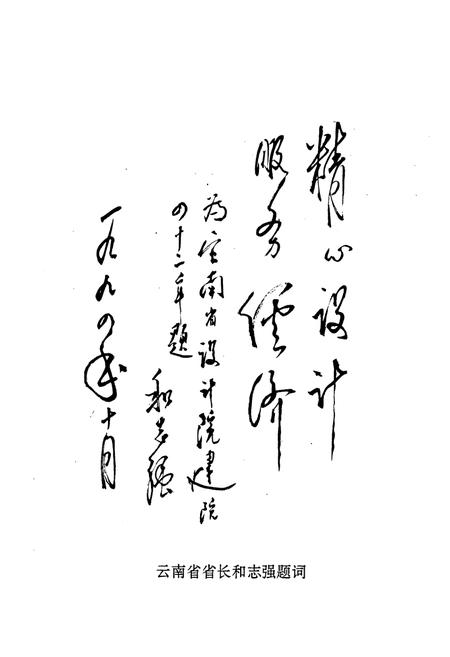 精心设计
服务经济
为云南省设计院建院
四十二年题
和志强
一九九四年十月
云南省省长和志强题词